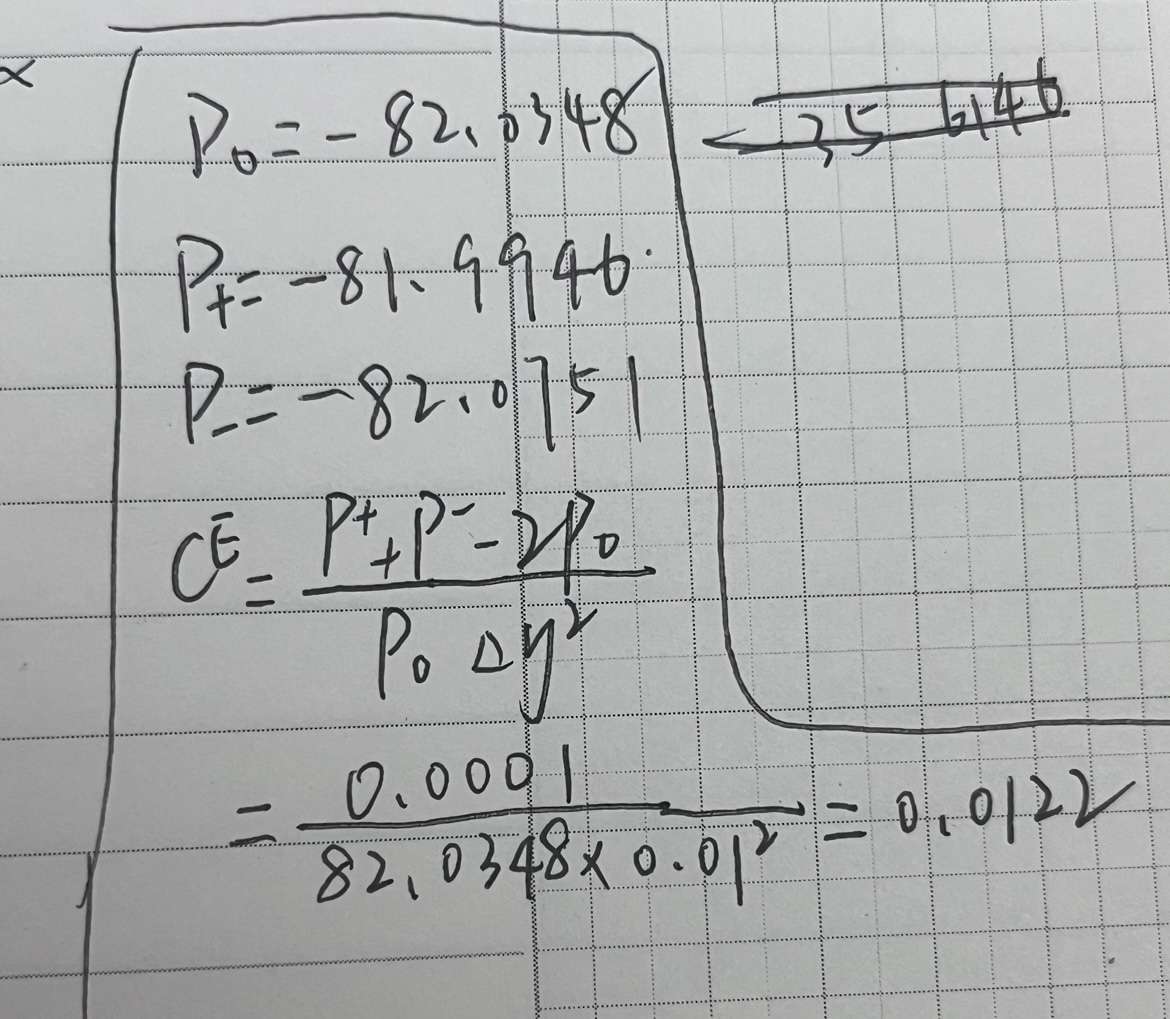 ∝
P₀ = -82.0348
P₊ = -81.9946.
P₋ = -82.0751
CE = (P⁺ + P⁻ - 2P₀) / (P₀ Δy²)
= 0.0001 / (82.0348 × 0.01²) = 0.0122